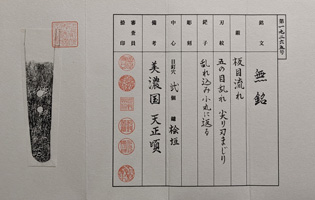 第一七二六五号
銘文
無銘
鍛
板目流れ
刃紋
五の目乱れ 尖り刃まじり
鋩子
乱れ込み小丸に返る
彫刻
中心
目釘穴 弐個 鑢 桧垣
備考
美濃国 天正頃
審査員